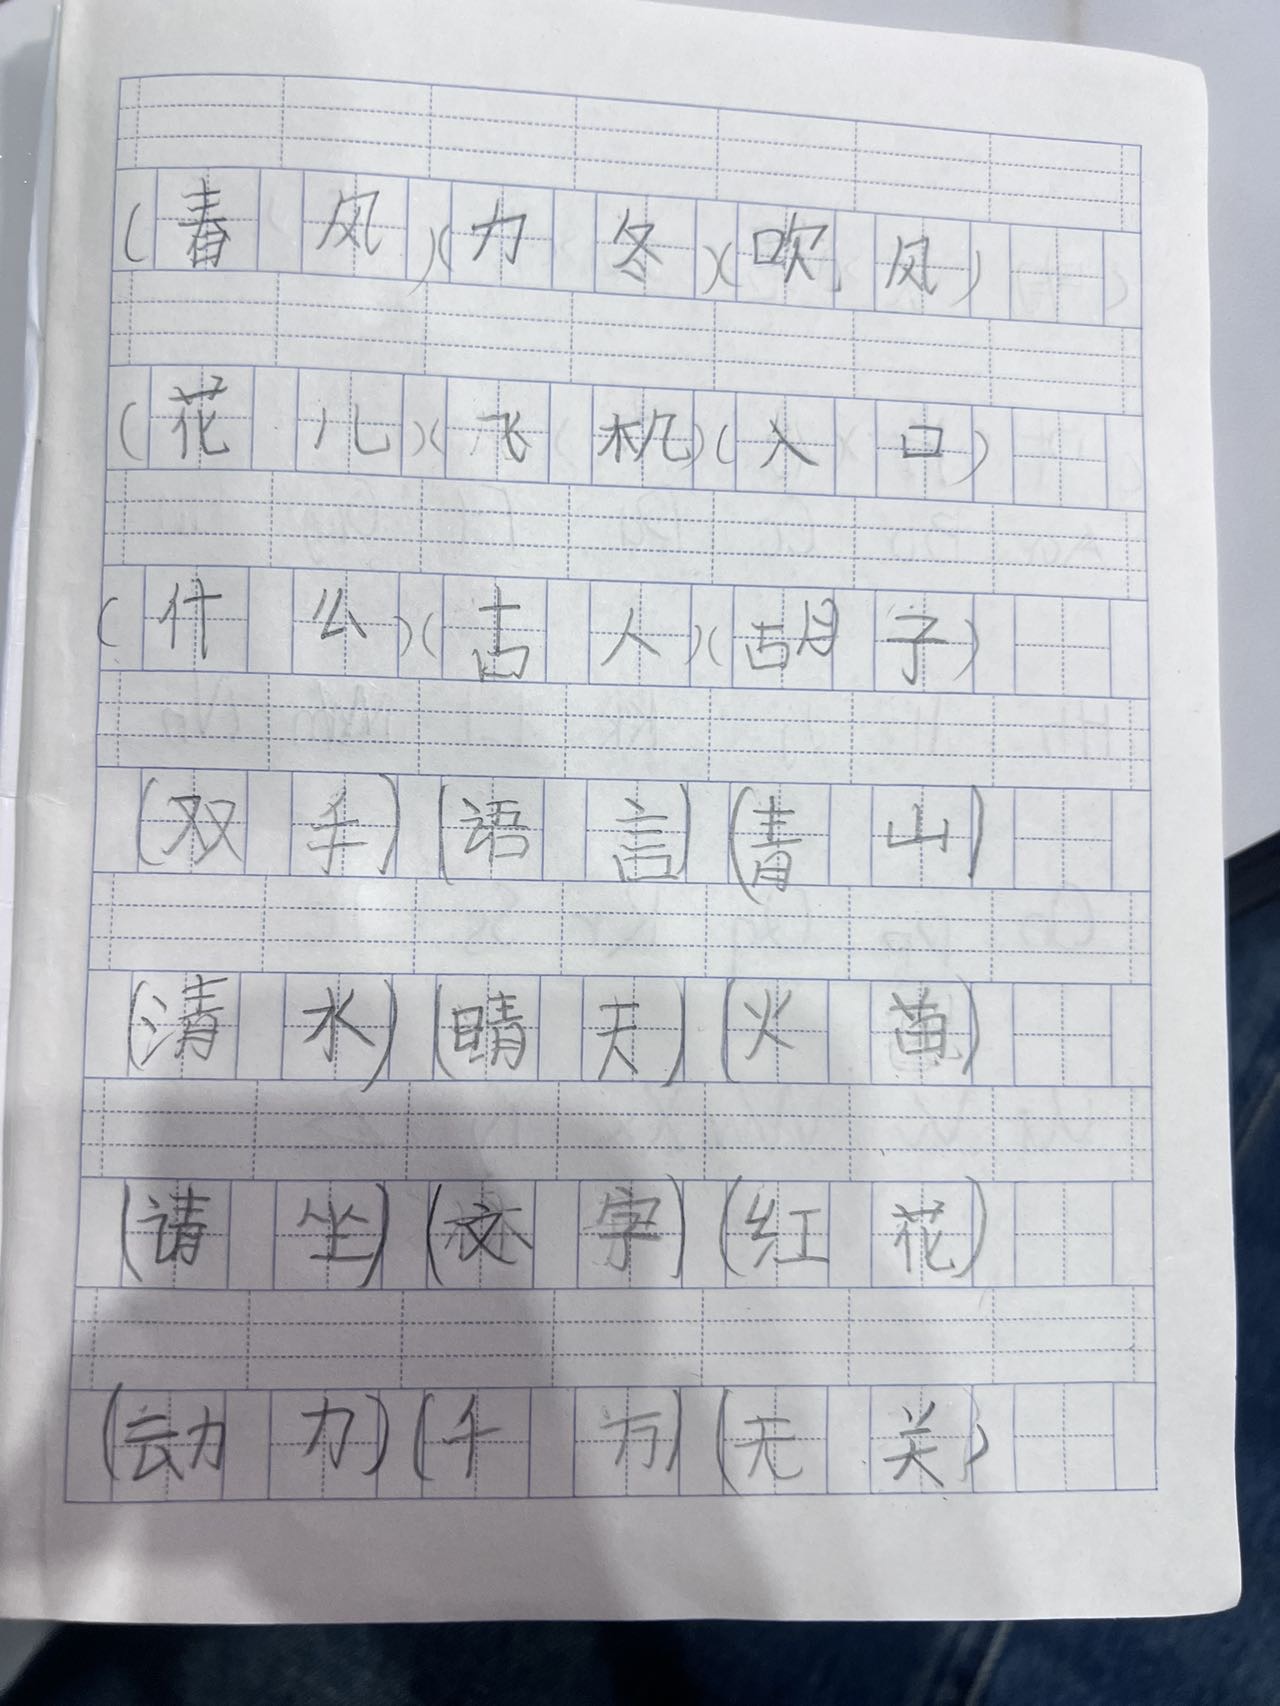 (春风)(力冬)(吹风)
(花儿)(飞机)(入口)
(什么)(古人)(胡子)
(双手)(语言)(青山)
(清水)(晴天)(火苗)
(请坐)(文字)(红花)
(动力)(千万)(无关)